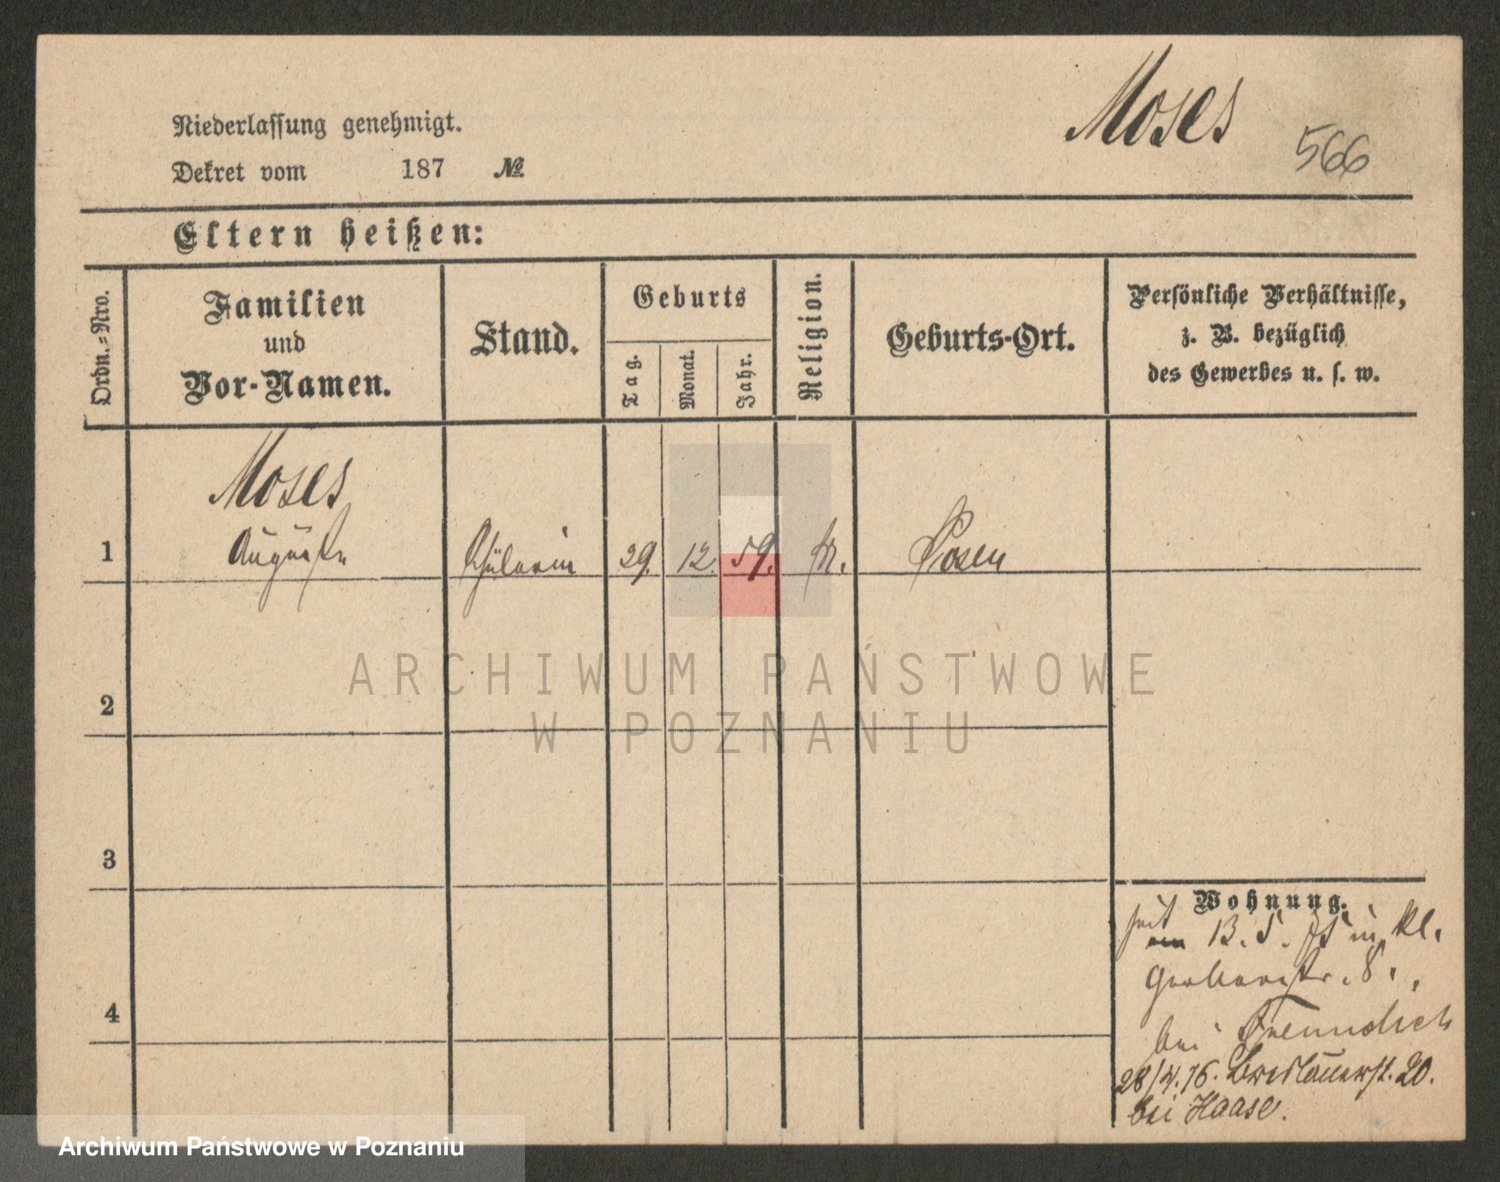 Moses
566
Niederlassung genehmigt.
Dekret vom 187 №
Eltern heißen:
Ordn.-Nro.
Familien
und
Vor-Namen.
Stand.
Geburts
Tag.
Monat.
Jahr.
Religion.
Geburts-Ort.
Persönliche Verhältnisse,
z. B. bezüglich
des Gewerbes u. s. w.
Moses
1 Auguste Schülerin 29. 12. 59. Posen
2
3
4
Wohnung.
seit
13. 5. 75 in Kl.
Gerberstr. 8.,
bei Freundlich
28/4.76. Breslauerst. 20.
bei Haase.
ARCHIWUM PAŃSTWOWE
W POZNANIU
Archiwum Państwowe w Poznaniu